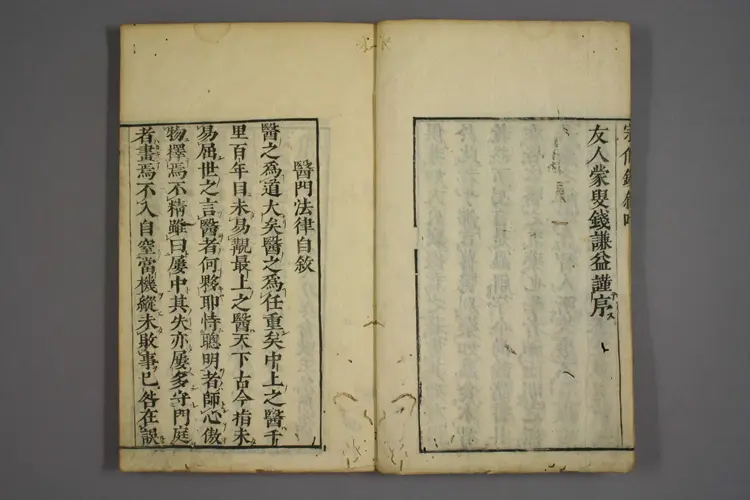 友人蒙叟錢謙益謹序
醫門法律自敘
醫之為道大矣醫之為任重矣中上之醫千
里百年目未易覯最上之醫天下古今指未
易屈世之言醫者何夥耶恃聰明者師心傲
物擇焉不精雖曰屢中其失亦屢多守門庭
者畫焉不入自窒當機縱未敗事已咎在誤